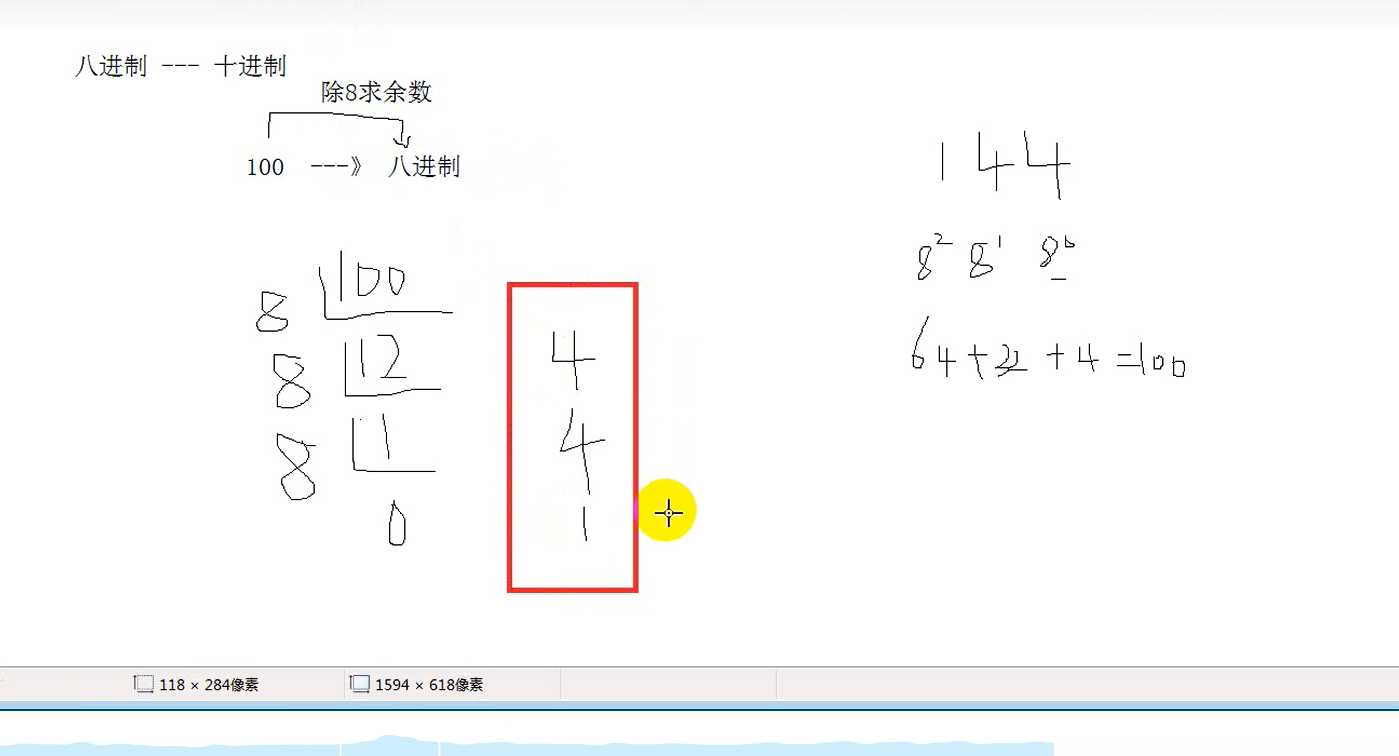 八进制 --- 十进制
除8求余数
100 ---》 八进制
8 100
8 12 4
8 1 4
0 1
144
8² 8¹ 8⁰
64+32+4=100
118 × 284像素
1594 × 618像素